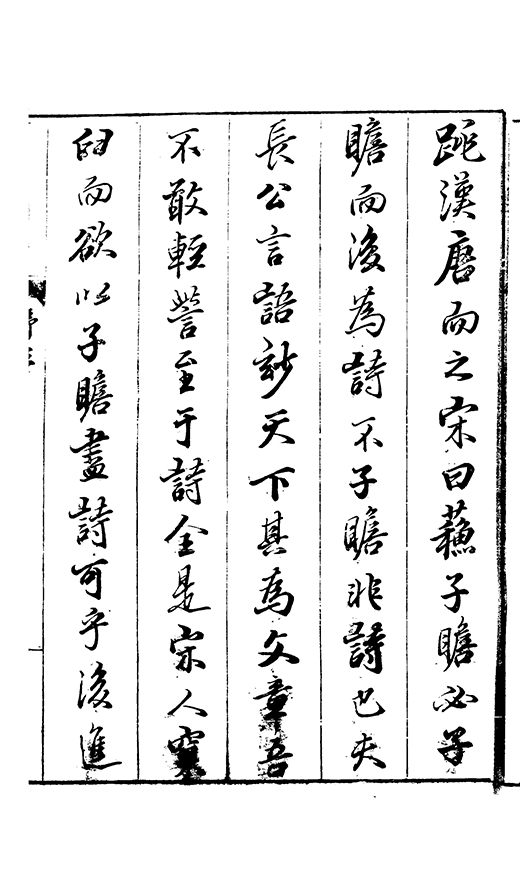 跳漢唐而之宋曰蘓子瞻必子
瞻而後為詩不子瞻非詩也夫
長公言語玅天下其為文章吾
不敢輕訾至于詩全是宋人窠
臼而欲以子瞻盡詩可乎後進